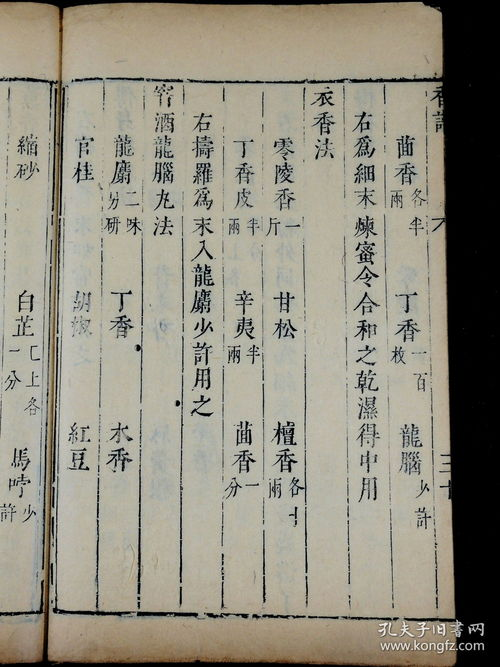 香譜
茴香各半兩 丁香一百枚 龍腦少許
右爲細末煉蜜令合和之乾濕得中用
衣香法
零陵香一斤 甘松 檀香各十兩
丁香皮半兩 辛夷半兩 茴香一分
右擣羅爲末入龍麝少許用之
窨酒龍腦丸法
龍麝二味另研 丁香 木香
官桂 胡椒 紅豆
縮砂 白芷已上各一分 馬哱少許
孔夫子旧书网
www.kongfz.com